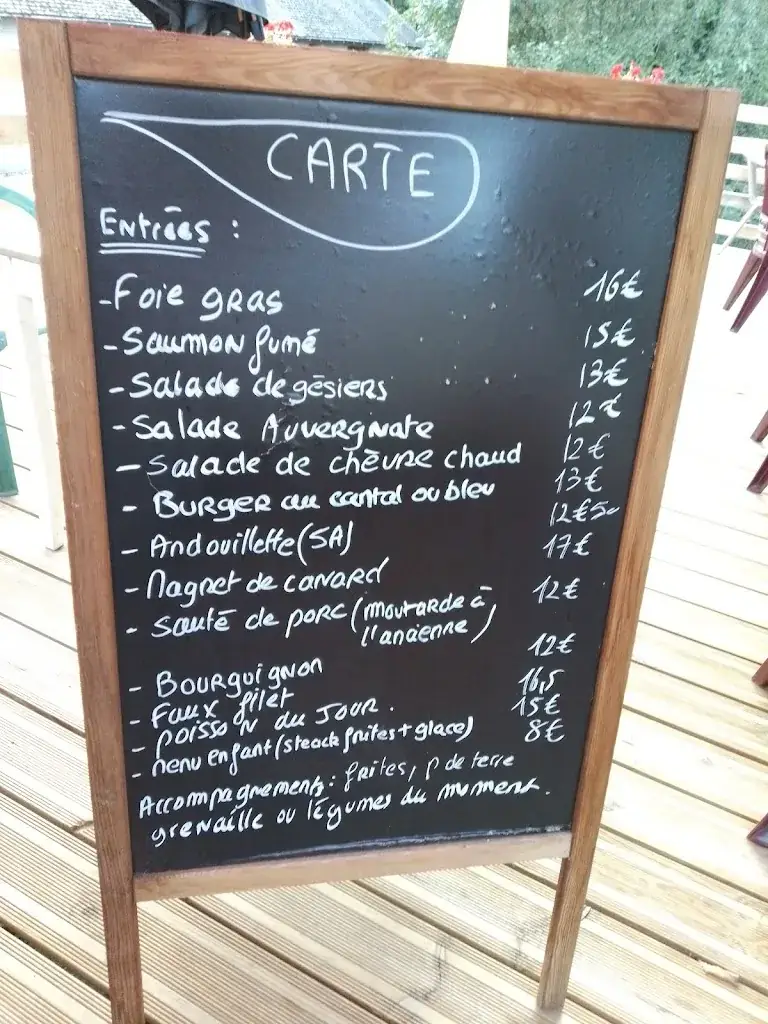 CARTE
Entrées :
- Foie gras 16€
- Saumon fumé 15€
- Salade de gésiers 13€
- Salade Auvergnate 12€
- Salade de chèvre chaud 12€
- Burger au cantal ou bleu 13€
- Andouillette (5A) 12€50
- Magret de canard 17€
- Sauté de porc (moutarde à 12€
l'ancienne)
- Bourguignon 12€
- Faux filet 16,5
- Poisson du jour. 15€
- Menu enfant (steack frites + glace) 8€
Accompagnements : frites, p de terre
grenaille ou légumes du moment.